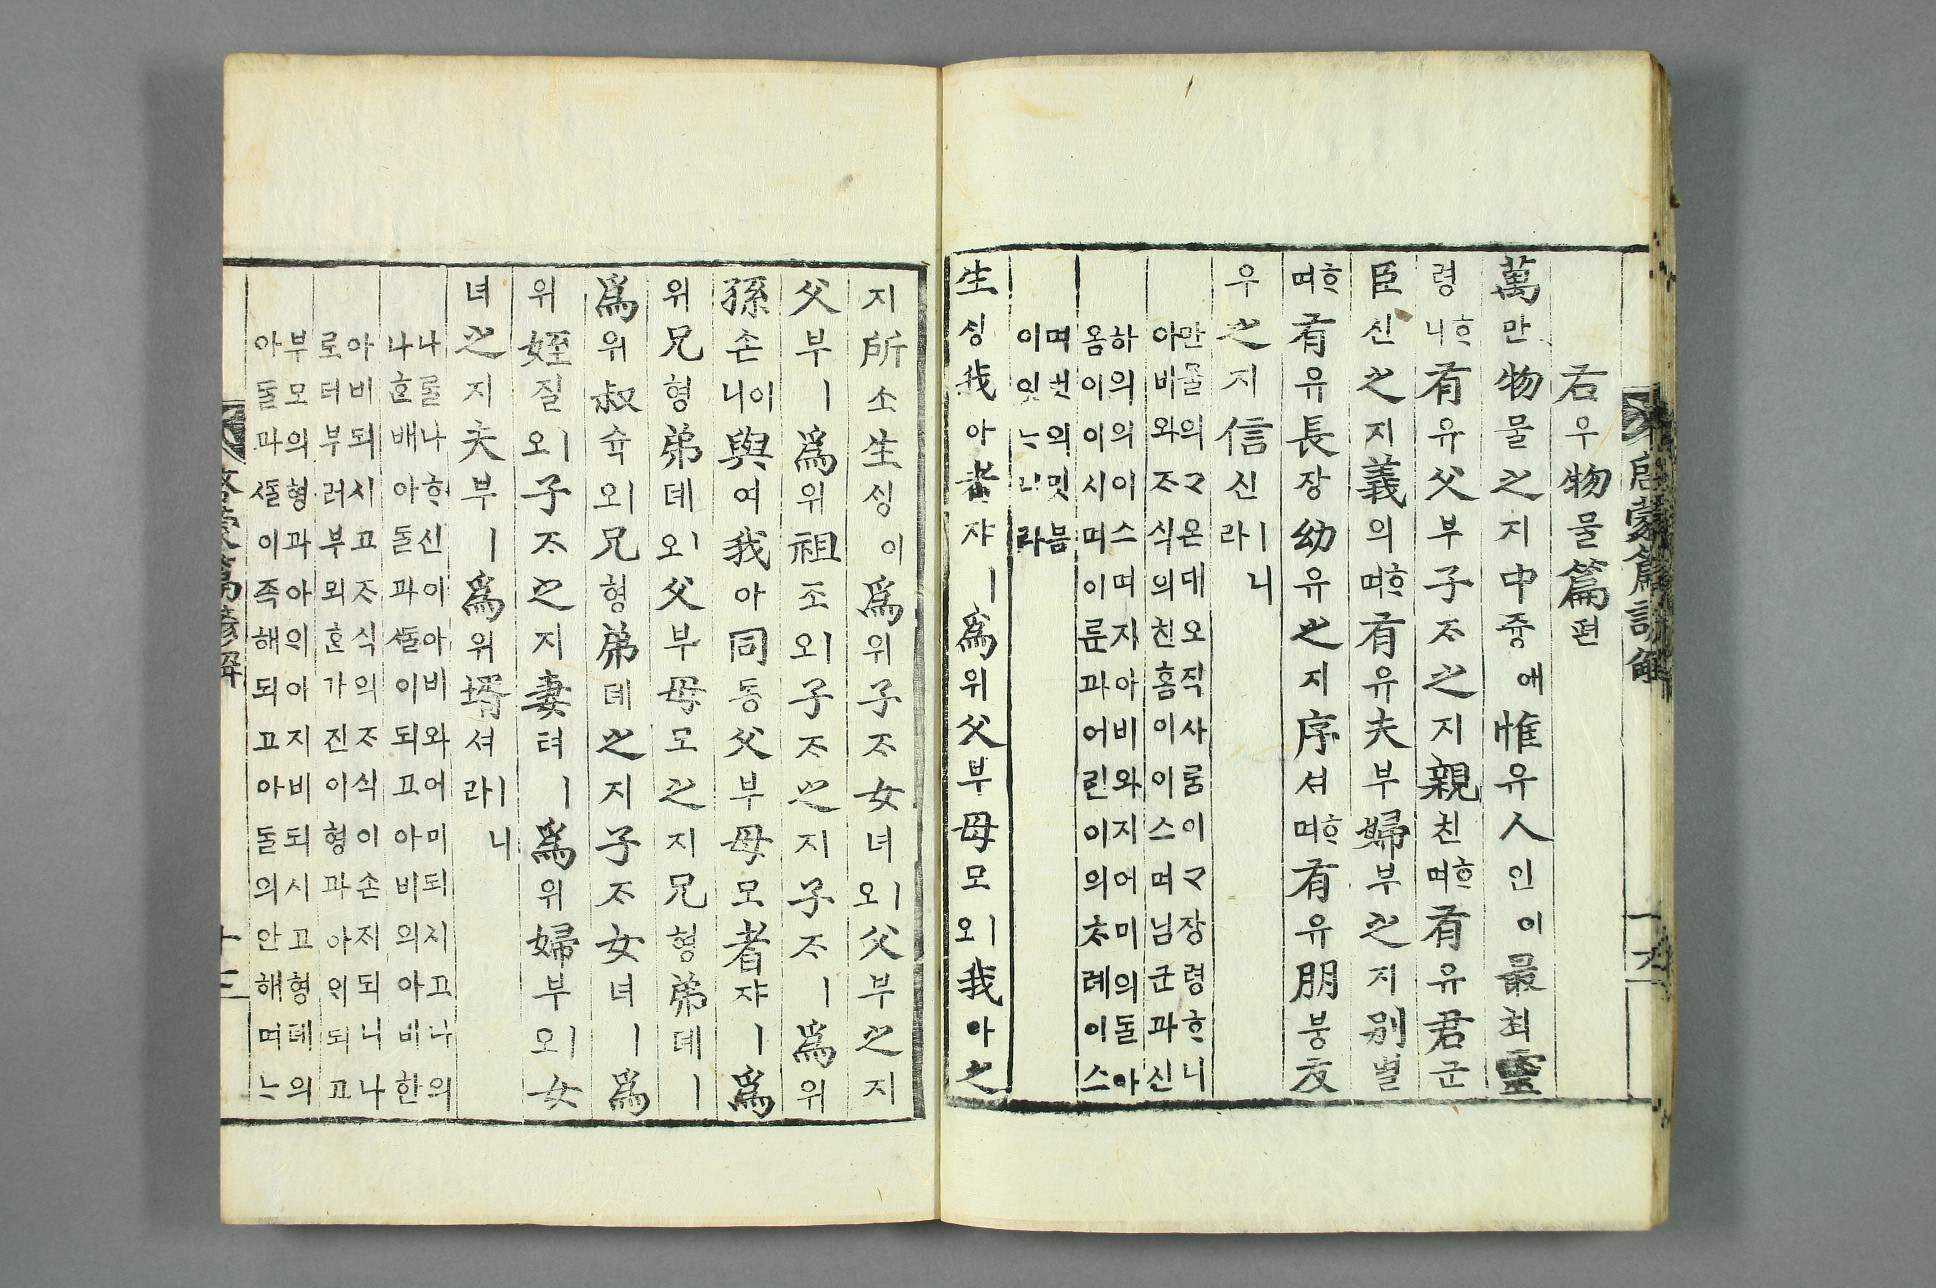 啓蒙篇諺解
右우物물篇편
萬만物물之지中즁애惟유人인이最최靈
령ᄒᆞ니有유父부子ᄌᆞ之지親친ᄒᆞ며有유君군
臣신之지義의ᄒᆞ며有유夫부婦부之지別별
ᄒᆞ며有유長장幼유之지序셔ᄒᆞ며有유朋붕友
우之지信신ㅣ니라
만물의ᄀᆞ온대오직사ᄅᆞᆷ이ᄀᆞ장령ᄒᆞ니
아비와ᄌᆞ식의친홈이이스며님군과신
하의의이스며지아비와지어미의돌아
옴이이시며이룬과어린이의ᄎᆞ례이스
며벗의밋븜
이잇ᄂᆞ니라
生싱我아者쟈ㅣ爲위父부母모ㅣ오我아之
지所소生싱이爲위子ᄌᆞ女녀ㅣ오父부之지
父부ㅣ爲위祖조ㅣ오子ᄌᆞ之지子ᄌᆞㅣ爲위
孫손이니與여我아同동父부母모者쟈ㅣ爲
위兄형弟뎨ㅣ오父부母모之지兄형弟뎨ㅣ
爲위叔슉ㅣ오兄형弟뎨之지子ᄌᆞ女녀ㅣ爲
위姪질ㅣ오子ᄌᆞ之지妻텨ㅣ爲위婦부ㅣ오女
녀之지夫부ㅣ爲위壻셔ㅣ니라
나ᄅᆞᆯ나ᄒᆞ신이아비와어미되시고나의
나혼배아돌과ᄯᆞᆯ이되고아비의아비한
아비되시고ᄌᆞ식의ᄌᆞ식이손저되니나
로더부러부뫼혼가진이형과아의되고
부모의형과아의아지비되시고형뎨의
아돌과ᄯᆞᆯ이족해되고아돌의안해며ᄂᆞ
啓蒙篇諺解